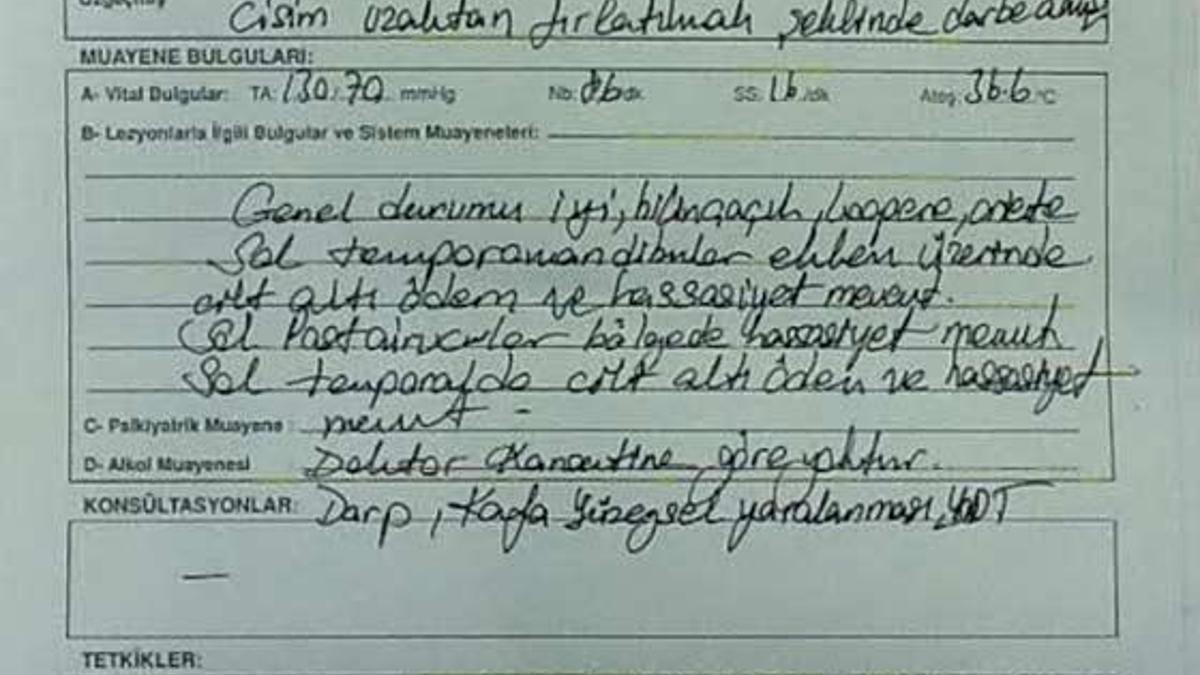 Özgeçmiş
Cisim uzaktan fırlatılmak şeklinde darbe almış
MUAYENE BULGULARI:
A- Vital Bulgular: TA: 130/70 mmHg Nb: 86/dk SS: 16/dk Ateş: 36.6 °C
B- Lezyonlarla İlgili Bulgular ve Sistem Muayeneleri:
Genel durumu iyi, bilinç açık, koopere, oriente
Sol temporamandibuler eklem üzerinde
cilt altı ödem ve hassasiyet mevcut.
Sol Postauricular bölgede hassasiyet mevcut
Sol temporalde cilt altı ödem ve hassasiyet
C- Psikiyatrik Muayene : mevcut -
D- Alkol Muayenesi Doktor Kanaatine göre yoktur.
KONSÜLTASYONLAR: Darp, Kafa Yüzeysel yaralanması,
—
TETKİKLER: